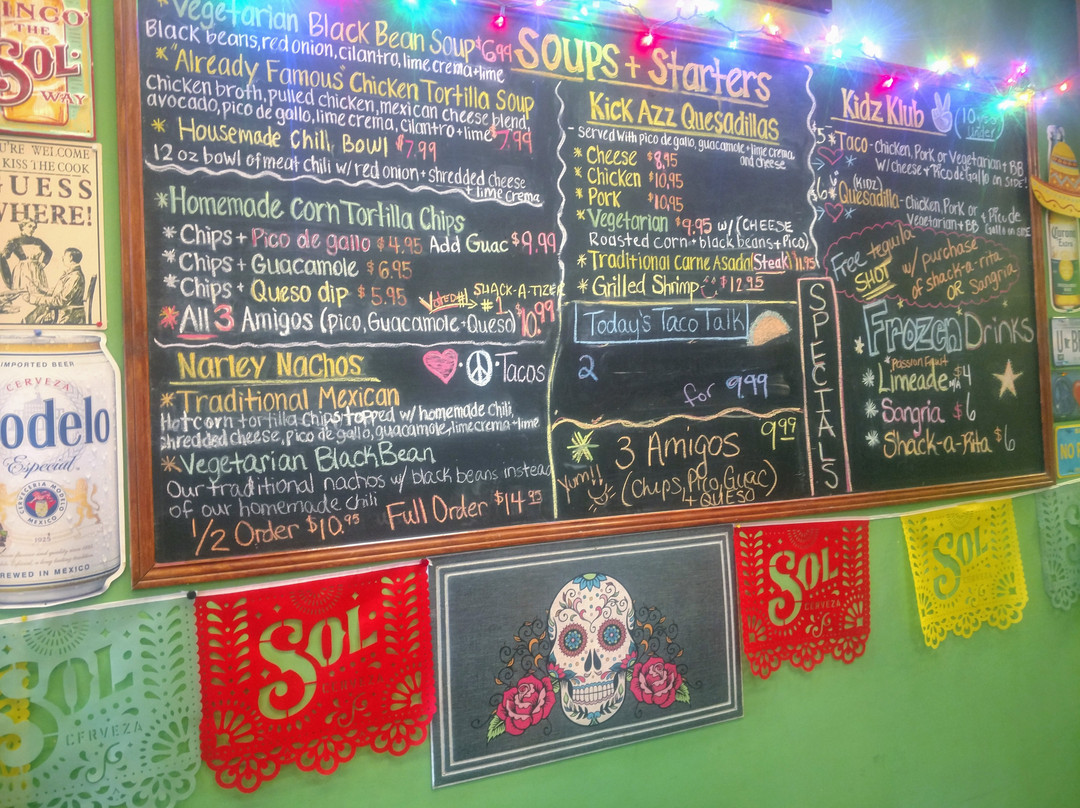 CINCO
THE
SOL
WAY
YOU'RE WELCOME
KISS THE COOK
GUESS
WHERE!
IMPORTED BEER
CERVEZA
Modelo
Especial
CERVECERIA MODELO
MEXICO
1925
BREWED IN MEXICO
*Vegetarian Black Bean Soup $6.99
Black beans, red onion, cilantro, lime crema + lime
*"Already Famous" Chicken Tortilla Soup
Chicken broth, pulled chicken, mexican cheese blend,
avocado, pico de gallo, lime crema, cilantro + lime $7.99
* Housemade Chili Bowl $7.99
12 oz bowl of meat chili w/ red onion + shredded cheese
+ lime crema
*Homemade Corn Tortilla Chips
* Chips + Pico de gallo $4.95 Add Guac $9.99
* Chips + Guacamole $6.95
* Chips + Queso dip $5.95
Voted #1 SHACK-A-TIZER
#1
* All 3 Amigos (pico, Guacamole + Queso) $10.99
Narley Nachos
• Tacos
*Traditional Mexican
Hot corn tortilla chips topped w/ homemade chili,
shredded cheese, pico de gallo, guacamole, lime crema + lime
*Vegetarian Black Bean
Our traditional nachos w/ black beans instead
of our homemade chili
1/2 Order $10.95 Full Order $14.95
SOUPS + Starters
Kick Azz Quesadillas
- served with pico de gallo, guacamole + lime crema
and cheese
* Cheese $8.95
* Chicken $10.95
* Pork $10.95
* Vegetarian $9.95 w/ (CHEESE
Roasted corn + black beans + Pico)
* Traditional Carne Asada (Steak) $11.95
* Grilled Shrimp $12.95
Today's Taco Talk
2
for 9.99
3 Amigos 9.99
Yum!! (Chips, Pico, Guac)
+ QUESO
SPECIALS
Kidz Klub (10 + under)
$5 *Taco - chicken, Pork or Vegetarian + BB
w/ cheese + Pico de Gallo on SIDE!
(KIDZ)
$6 *Quesadilla - Chicken, Pork or + Pico de
Vegetarian + BB Gallo on SIDE
Free tequila
SHOT
w/ purchase
of shack-a-rita
OR Sangria
Frozen Drinks
Passion Fruit
* Limeade N/A $4
* Sangria $6
* Shack-a-Rita $6
Corona
Extra
SOL
CERVEZA
SOL
CERVEZA
SOL
CERVEZA
SOL